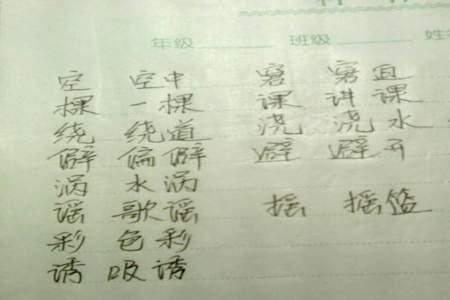 年级 班级
空 空中
棵 一棵 课 讲课
绕 绕道 浇 浇水
僻 偏僻 避 避开
涡 水涡
谣 歌谣 摇 摇篮
彩 色彩
诱 吸诱